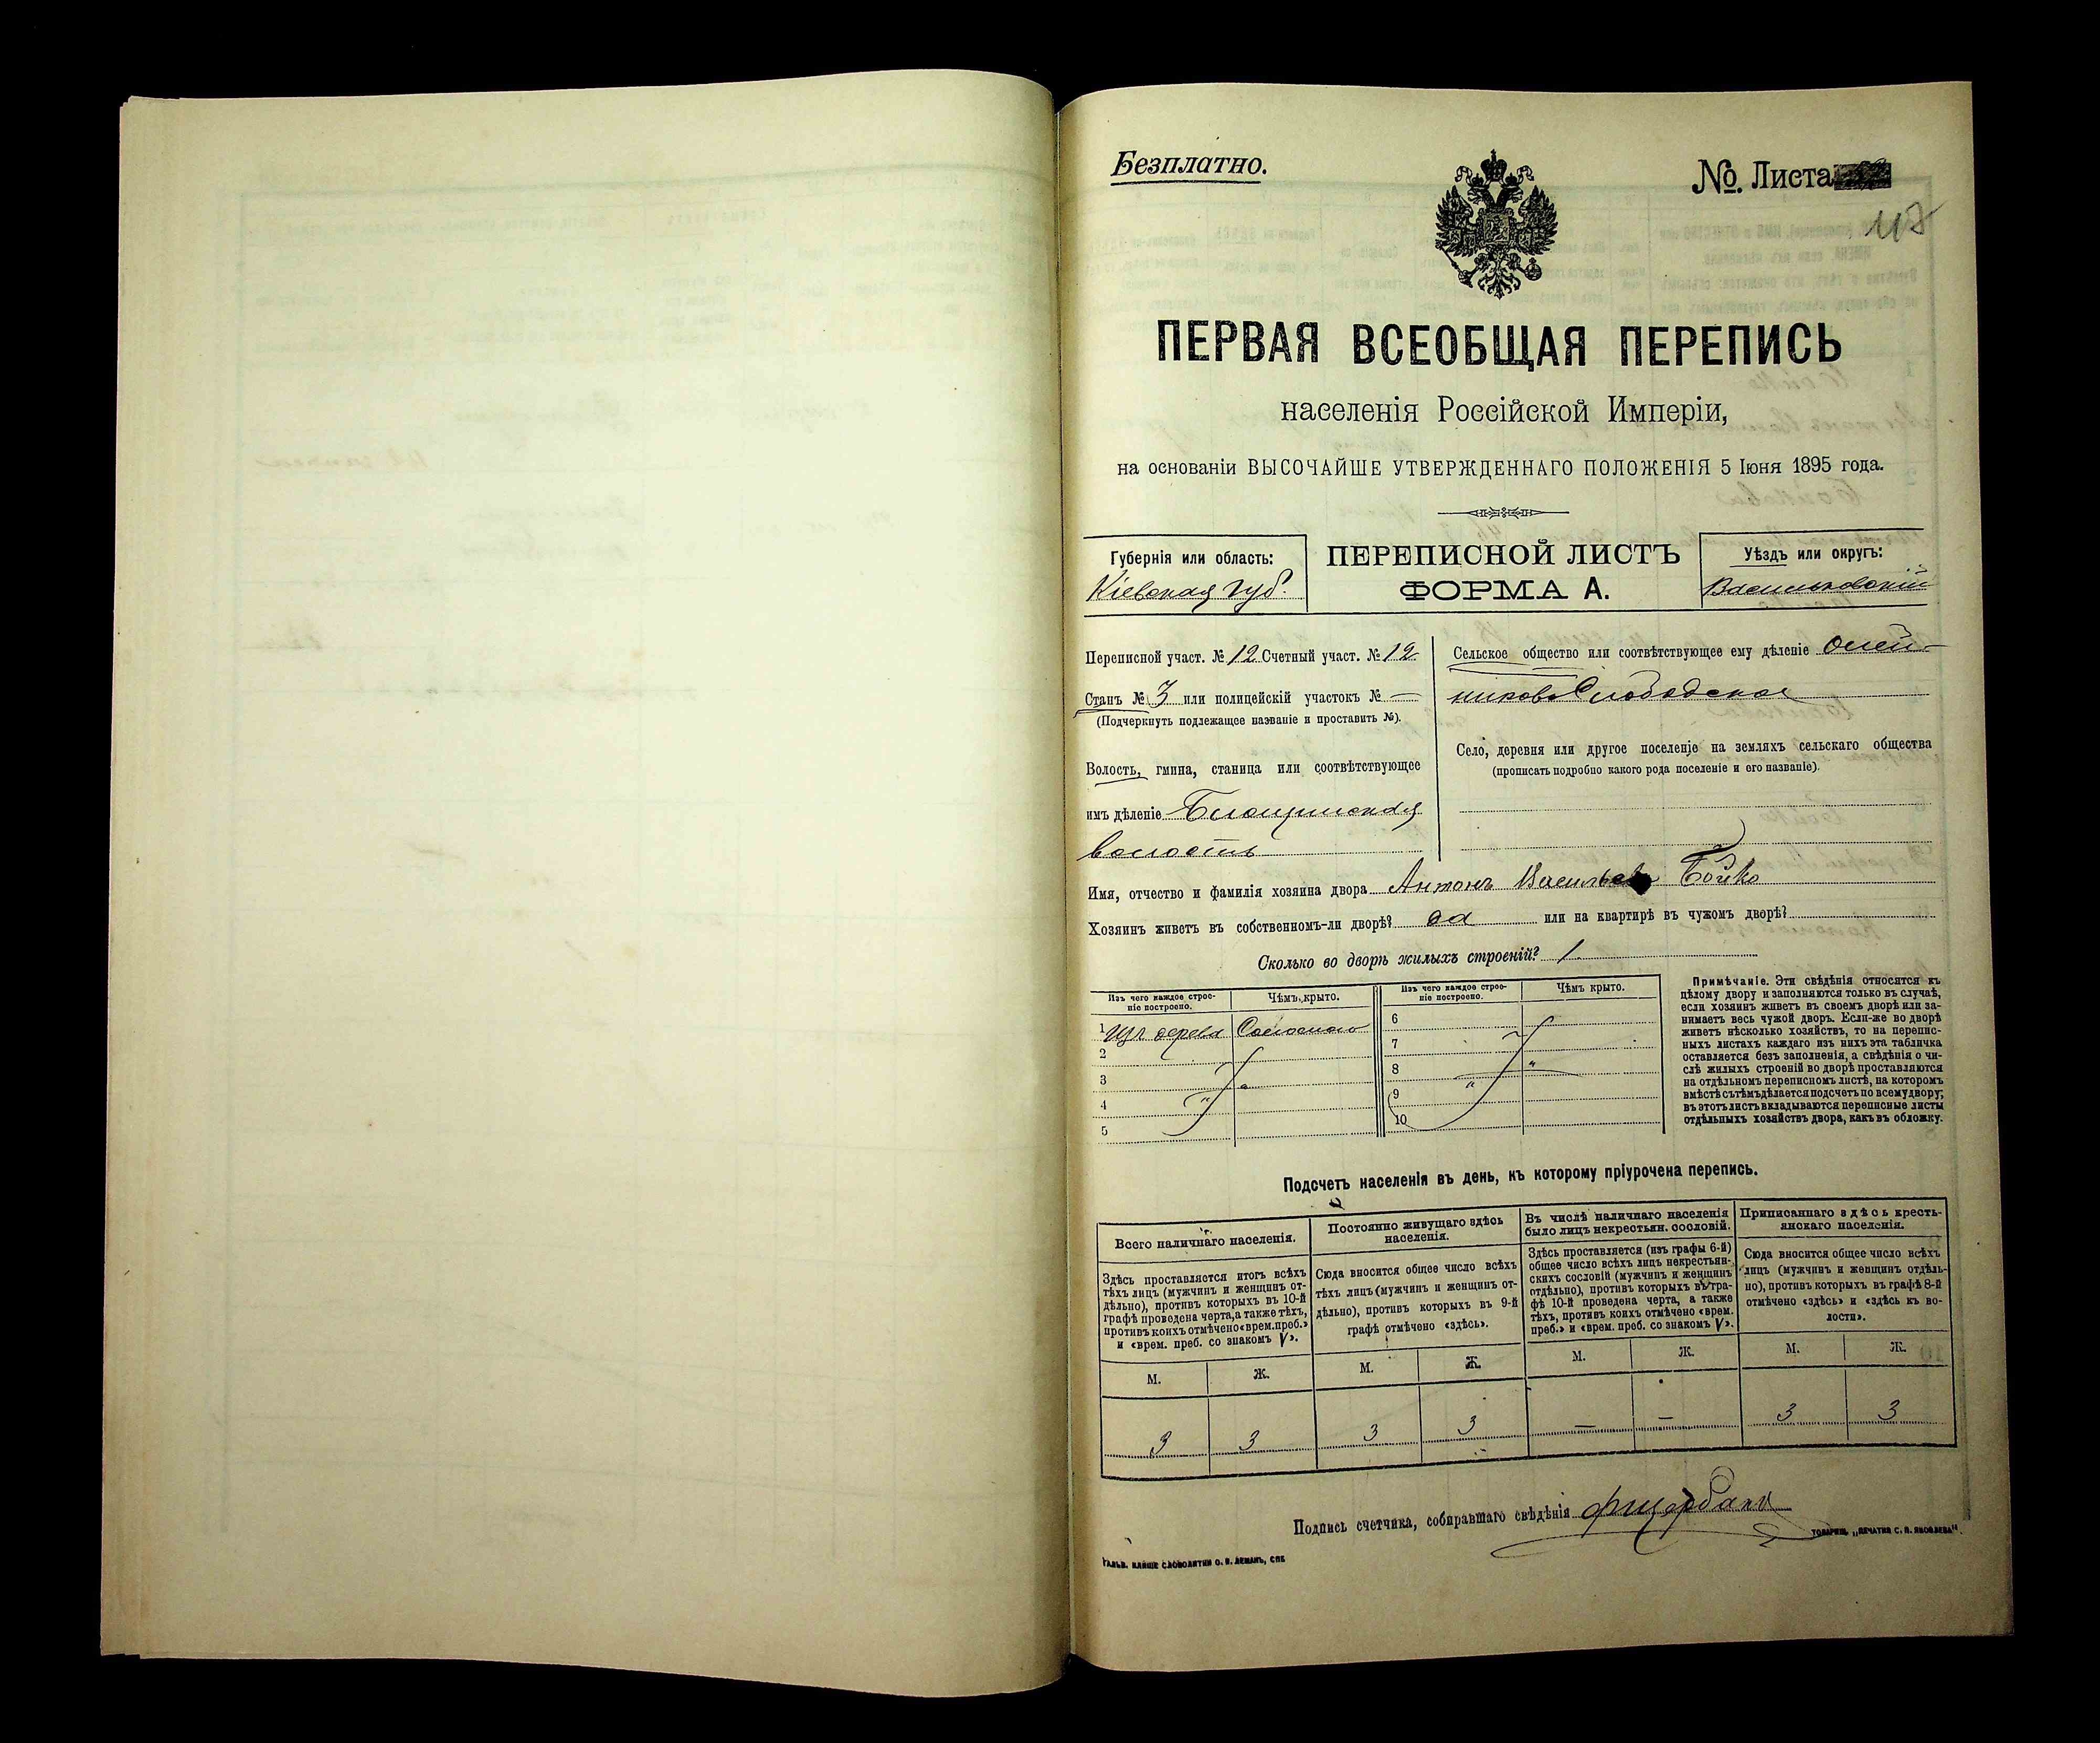 Безплатно.
№. Листа
118
ПЕРВАЯ ВСЕОБЩАЯ ПЕРЕПИСЬ
населенія Россійской Имперіи,
на основаніи ВЫСОЧАЙШЕ УТВЕРЖДЕННАГО ПОЛОЖЕНІЯ 5 Іюня 1895 года.
Губернія или область:
Кіевская губ.
ПЕРЕПИСНОЙ ЛИСТЪ
ФОРМА А.
Уѣздъ или округъ:
Васильковскій
Переписной участ. № 12 Счетный участ. № 12
Станъ № 3 или полицейскій участокъ № —
(Подчеркнуть подлежащее названіе и проставить №).
Волость, гмина, станица или соотвѣтствующее
имъ дѣленіе Блощинская
волость
Сельское общество или соотвѣтствующее ему дѣленіе Олей-
никово Слободское
Село, деревня или другое поселеніе на земляхъ сельскаго общества
(прописать подробно какого рода поселеніе и его названіе).
Имя, отчество и фамилія хозяина двора Антонъ Васильевъ Бойко
Хозяинъ живетъ въ собственномъ-ли дворѣ? да или на квартирѣ въ чужомъ дворѣ?
Сколько во дворѣ жилыхъ строеній? 1.
Изъ чего каждое строе-
ніе построено.
Чѣмъ крыто.
Изъ чего каждое строе-
ніе построено.
Чѣмъ крыто.
1 Изъ дерева Соломою
2
3
4
5
6
7
8
9
10
Примѣчаніе. Эти свѣдѣнія относятся къ
цѣлому двору и заполняются только въ случаѣ,
если хозяинъ живетъ въ своемъ дворѣ или за-
нимаетъ весь чужой дворъ. Если-же во дворѣ
живетъ нѣсколько хозяйствъ, то на перепис-
ныхъ листахъ каждаго изъ нихъ эта табличка
оставляется безъ заполненія, а свѣдѣнія о чи-
слѣ жилыхъ строеній во дворѣ проставляются
на отдѣльномъ переписномъ листѣ, на которомъ
вмѣстѣ сътѣмъ дѣлается подсчетъ по всему двору;
въ этотъ листъ вкладываются переписные листы
отдѣльныхъ хозяйствъ двора, какъ въ обложку.
Подсчетъ населенія въ день, къ которому пріурочена перепись.
Всего наличнаго населенія.
Здѣсь проставляется итогъ всѣхъ
тѣхъ лицъ (мужчинъ и женщинъ от-
дѣльно), противъ которыхъ въ 10-й
графѣ проведена черта, а также тѣхъ,
противъ коихъ отмѣчено «врем. преб.»
и «врем. преб. со знакомъ V».
Постоянно живущаго здѣсь
населенія.
Сюда вносится общее число всѣхъ
тѣхъ лицъ (мужчинъ и женщинъ от-
дѣльно), противъ которыхъ въ 9-й
графѣ отмѣчено «здѣсь».
Въ числѣ наличнаго населенія
было лицъ некрестьян. сословій.
Здѣсь проставляется (изъ графы 6-й)
общее число всѣхъ лицъ некрестьян-
скихъ сословій (мужчинъ и женщинъ
отдѣльно), противъ которыхъ въ гра-
фѣ 10-й проведена черта, а также
тѣхъ, противъ коихъ отмѣчено «врем.
преб.» и «врем. преб. со знакомъ V».
Приписаннаго здѣсь кресть-
янскаго населенія.
Сюда вносится общее число всѣхъ
лицъ (мужчинъ и женщинъ отдѣль-
но), противъ которыхъ въ графѣ 8-й
отмѣчено «здѣсь» и «здѣсь къ во-
лости».
М. Ж. М. Ж. М. Ж. М. Ж.
3 3 3 3 — — 3 3
Подпись счетчика, собиравшаго свѣдѣнія
ТОВАРИЩ. „ПЕЧАТНЯ С. П. ЯКОВЛЕВА“.
ГАЛЬВ. КЛИШЕ СЛОВОЛИТНИ О. И. ЛЕМАНЪ, СПБ